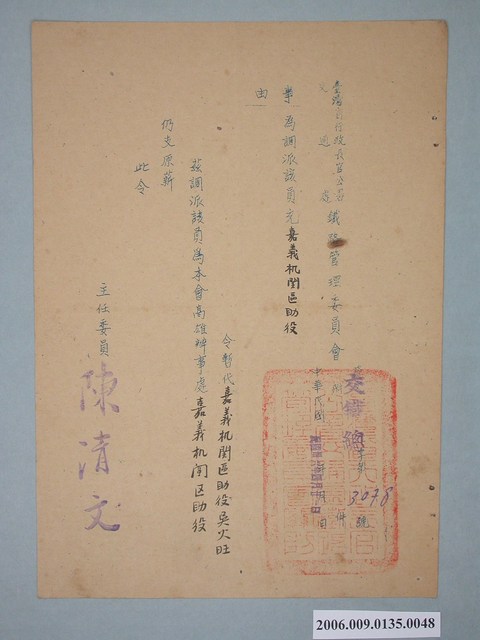 臺灣省行政長官公署
交通處
鐵路管理委員會
交鐵總字第3078號
中華民國
事由
為調派該員充嘉義机関區助役
令暫代嘉義机関區助役吳火旺
茲調派該員為本會高雄辦事處嘉義机関区助役
仍支原薪
此令
主任委員
陳清文
2006.009.0135.0048